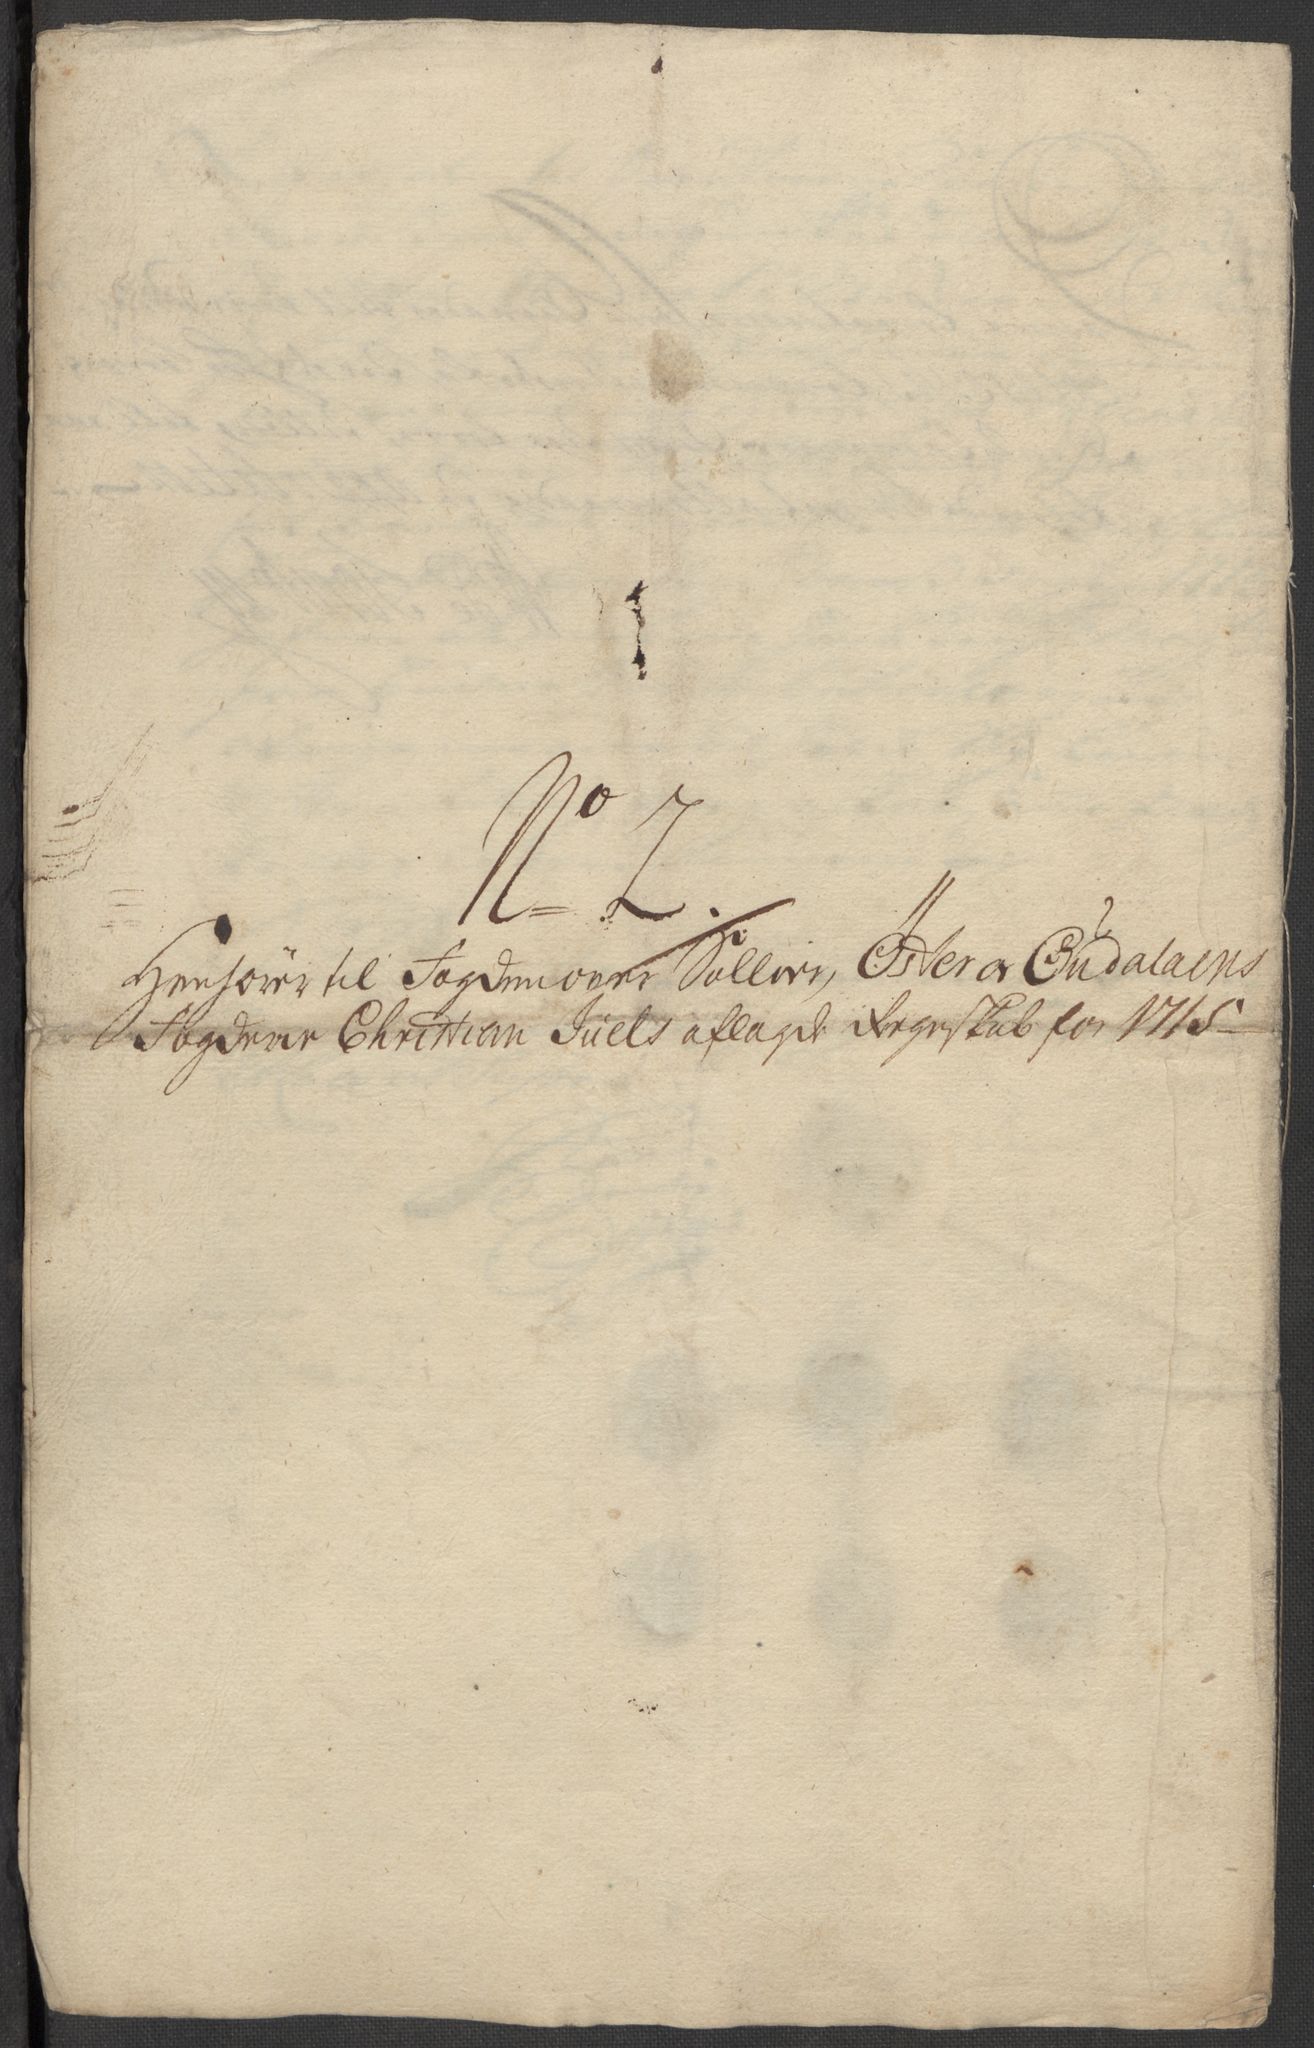 No 2.
Henhører til Fogden over Solløer, Øster og Ødalens
Fogderie Christian Juels aflagde Regenskab for 1715